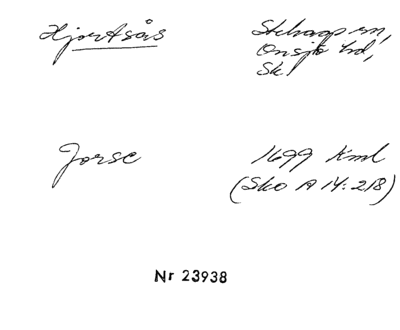 Hjortsås
Stehag sn,
Onsjö hd,
Sk
Jorsc
1699 Kml
(Sko A 14: 218)
Nr 23938